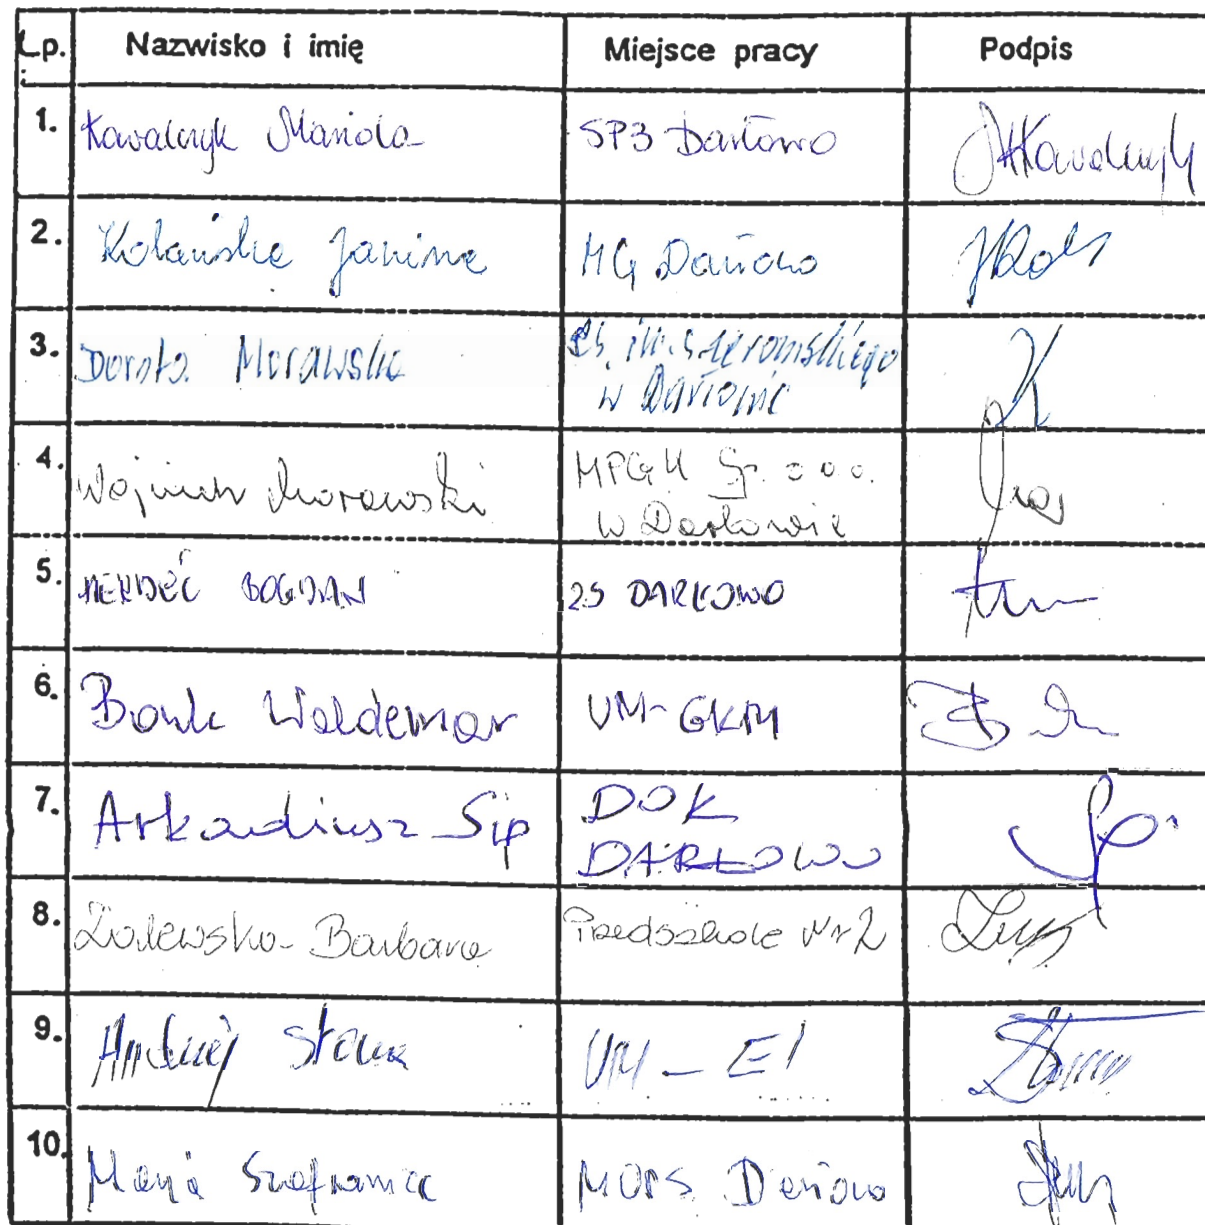 Lp. Nazwisko i imię Miejsce pracy Podpis
1. Kowalczyk Mariola SP3 Darłowo MKowalczyk
2. Kolańska Janina MG Darłowo
3. Dorota Morawska im. S. Żeromskiego
w Darłowie
4. Wojciech Morawski MPGK Sp. z o.o.
w Darłowie
5. BOGDAN ZS DARŁOWO
6. Bonk Waldemar UM-GKM
7. Arkadiusz Sip DOK
DARŁOWO
8. Zalewska Barbara Przedszkole Nr 2
9. Andrzej UM - EI
10. Maria Szafraniec MOPS Darłowo